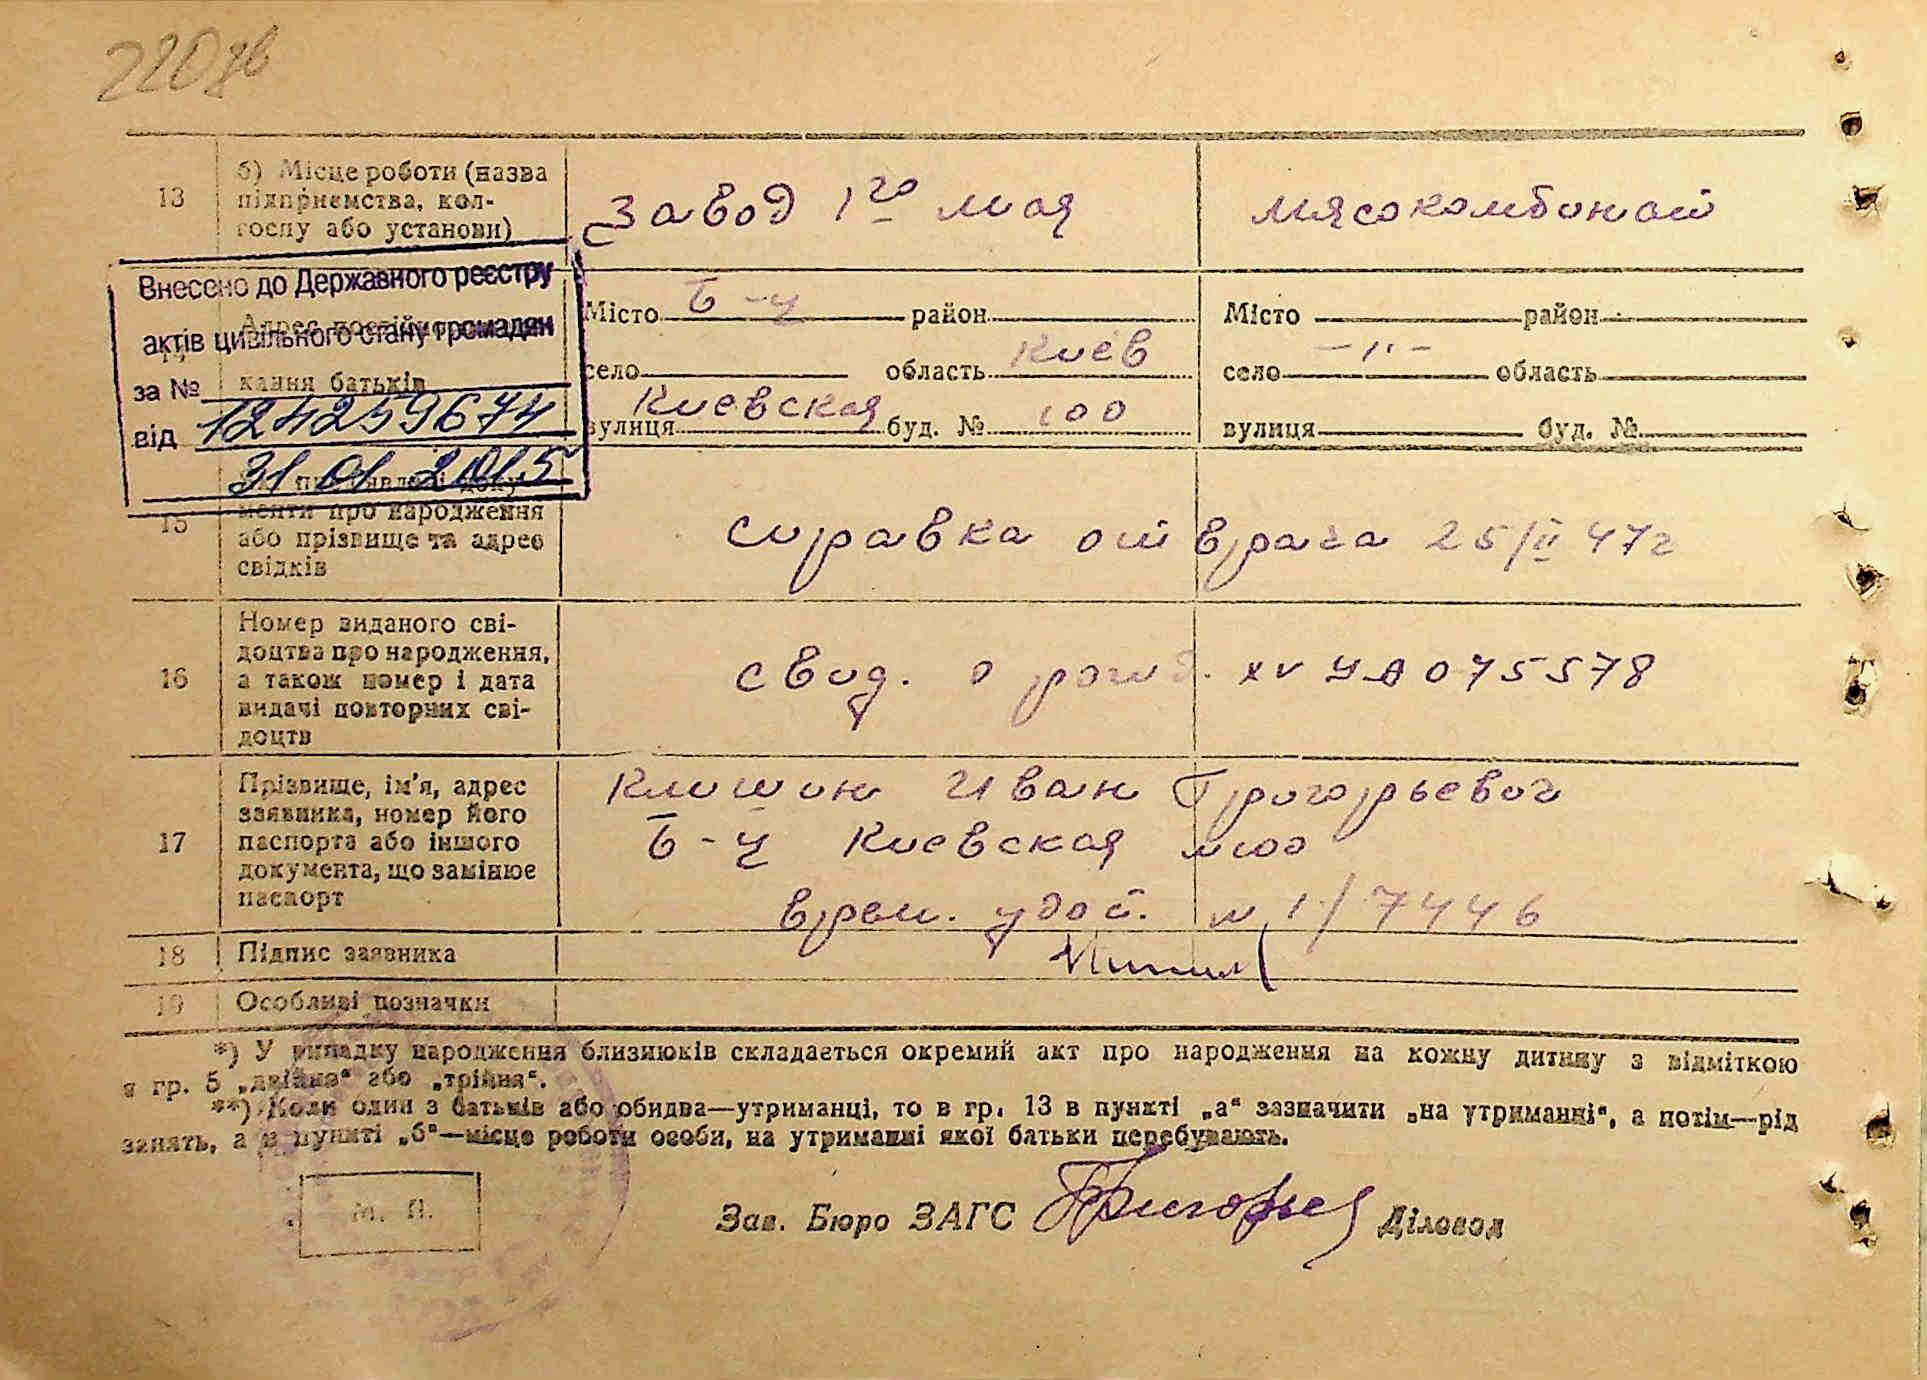 220 зв
13
б) Місце роботи (назва
підприємства, кол-
госпу або установи)
Завод 1го мая
мясокомбинат
Внесено до Державного реєстру
актів цивільного стану громадян
за №
від 124259674
31 01 2015
Адрес постійного
кання батьків
Місто Б-Ц район
село область Киев
вулиця Киевская буд. № 100
Місто район
село -"- область
вулиця буд. №
15
менти про народження
або прізвище та адрес
свідків
справка от врача 25/II 47г
16
Номер виданого сві-
доцтва про народження,
а також номер і дата
видачі повторних сві-
доцтв
свид. о рожд. XV УА 075578
17
Прізвище, ім'я, адрес
заявника, номер його
паспорта або іншого
документа, що замінює
паспорт
Клишин Иван Григорьевич
Б-Ц Киевская №100
врем. удост. № 1/7446
18
Підпис заявника
19
Особливі позначки
*) У випадку народження близнюків складається окремий акт про народження на кожну дитину з відміткою
в гр. 5 „двійня“ або „трійня“.
**) Коли один з батьків або обидва—утриманці, то в гр. 13 в пункті „а“ зазначити „на утриманні“, а потім—рід
занять, а в пункті „б“—місце роботи особи, на утриманні якої батьки перебувають.
М. П.
Зав. Бюро ЗАГС
Діловод